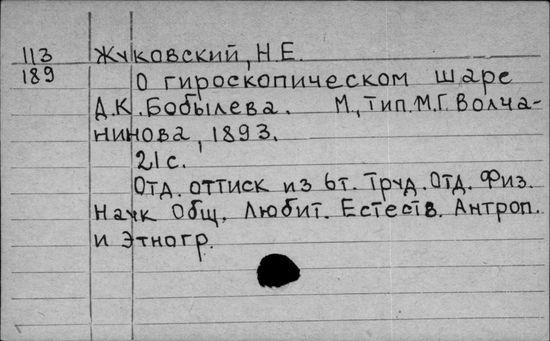 113 Жуковский, Н.Е.
189 О гироскопическом шаре
Д.К. Бобылева. М., тип. М.Г. Волча-
нинова, 1893.
21 с.
Отд. оттиск из 6т. Труд. Отд. Физ.
Наук Общ. Любит. Естеств. Антроп.
и Этногр.